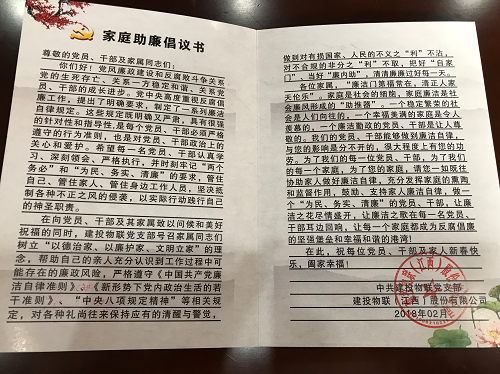 家庭助廉倡议书
尊敬的党员、干部及家属同志们：
你们好！党风廉政建设和反腐败斗争关系
党的生死存亡、关系一方稳定和谐、关系党
员、干部的成长进步。党中央高度重视反腐倡
廉工作，提出了明确要求，制定了一系列廉洁
自律规定。这些规定既明确又严肃，具有很强
的针对性和指导性，是每个党员、干部必须严格
遵守的行为准则，也是对党员、干部政治上的
关心和爱护。希望每一名党员、干部认真学
习、深刻领会、严格执行，并时刻牢记“两个
务必”和“为民、务实、清廉”的要求，管住
自己、管住家人、管住身边工作人员，坚决抵
制各种不正之风的侵袭，以实际行动践行自己
的神圣职责。
在向党员、干部及其家属致以问候和美好
祝福的同时，建投物联党支部号召家属同志们
树立“以德治家、以廉护家、文明立家”的理
念，帮助自己的亲人充分认识到工作过程中可
能存在的廉政风险，严格遵守《中国共产党廉
洁自律准则》《新形势下党内政治生活的若
干准则》、“中央八项规定精神”等相关规
定，对各种礼尚往来保持应有的清醒与警觉，
做到对有损国家、人民的不义之“利”不沾，
对不合规的非分之“利”不取，把好“自家
门”、当好“廉内助”，清清廉廉过好每一天。
各位家属，“廉洁门第福常在，清正人家
天伦乐”。家庭是社会的细胞，家庭廉洁是社
会廉风形成的“助推器”。一个稳定繁荣的社
会是人们向往的，一个幸福美满的家庭是令人
羡慕的，一个廉洁勤政的党员、干部是让人尊
敬的。我们的党员、干部能够做到廉洁自律，
与您的影响是分不开的，很大程度上有您的功
劳。为了我们的每一位党员、干部，为了我们
的每一个家庭，为了您的家庭，请您一如既往
协助家人做好廉洁自律，充分发挥家庭的熏陶
和监督作用，鼓励、支持家人廉洁自律，做一
个“为民、务实、清廉”的党员、干部，让廉
洁之花尽情盛开，让廉洁之歌在每一名党员、
干部耳边回响，让每一个家庭都成为反腐倡廉
的坚强堡垒和幸福和谐的港湾！
在此，祝每位党员、干部及家人新春快
乐，阖家幸福！
中共建投物联党支部
建投物联（江西）股份有限公司
2018年02月